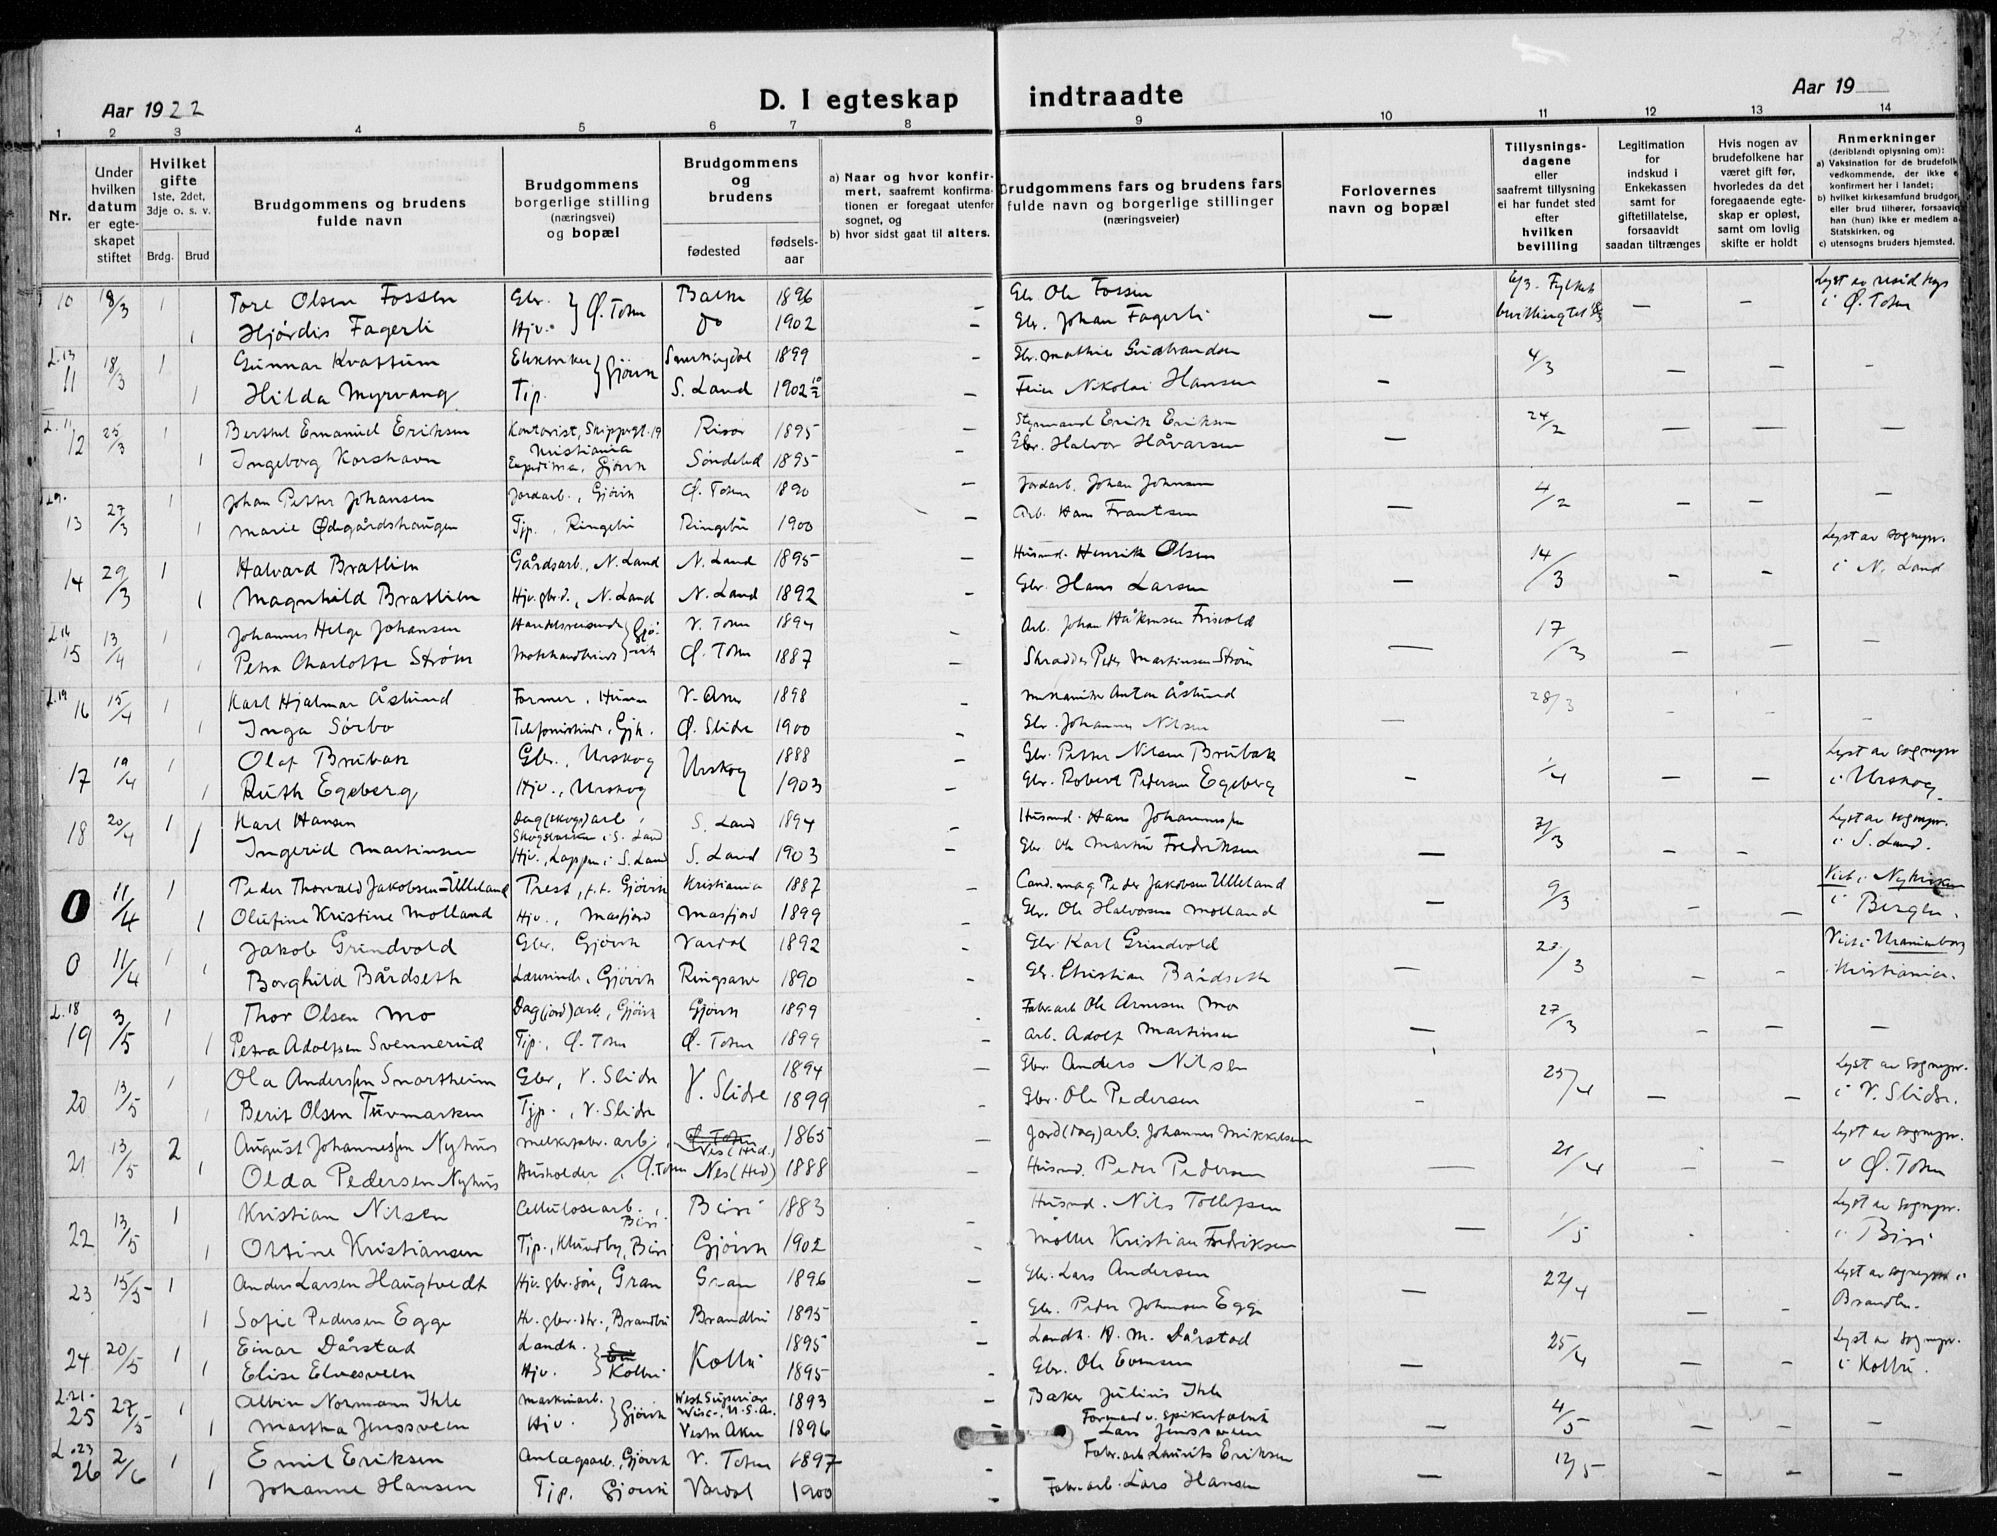 Aar 1922
D. I egteskap
indtraadte
Aar 19
1 2 3 4 5 6 7 8 9 10 11 12 13 14
Nr.
Under hvilken datum er egteskapet stiftet
Hvilket gifte 1ste, 2det, 3dje o. s. v.
Brdg. Brud
Brudgommens og brudens fulde navn
Brudgommens borgerlige stilling (næringsvei) og bopæl
Brudgommens og brudens
fødested
fødsels-aar
a) Naar og hvor konfirmert, saafremt konfirmationen er foregaat utenfor sognet, og
b) hvor sidst gaat til alters.
Brudgommens fars og brudens fars fulde navn og borgerlige stillinger (næringsveier)
Forlovernes navn og bopæl
Tillysningsdagene eller saafremt tillysning ei har fundet sted efter hvilken bevilling
Legitimation for indskud i Enkekassen samt for giftetillatelse, forsaavidt saadan tiltrænges
Hvis nogen av brudefolkene har været gift før, hvorledes da det foregaaende egteskap er opløst, samt om lovlig skifte er holdt
Anmerkninger
(deriblandt oplysning om):
a) Vaksination for de brudefolk vedkommende, der ikke e konfirmert her i landet;
b) hvilket kirkesamfund brudgom eller brud tilhører, forsaavidt han (hun) ikke er medlem a Statskirken, og
c) utensogns bruders hjemsted.
10 18/3 1 Tore Olsen Fossen Gbr. } Ø. Toten 1896 — Gbr Ole Fossen 6/3. — — Lyst av resid kap
1 Hjørdis Fagerli Hjv. do 1902 — Gbr. Johan Fagerli — i Ø. Toten
L. 13 11 18/3 1 Gunnar Kvattum } Gjøvik 1899 — Gbr. Mathias Gudbrandsen 4/3 — — —
1 Hilda Myrvang Tjp. S. Land 1902 — Nikolai Hansen —
L. 11 12 25/3 1 Berthel Emanuel Eriksen Kontorist, Skippergt. 19 Kristiania Risør 1895 — Styrmand Erik Eriksen 24/2 — — —
1 Ingeborg Korshavn Gjøvik Søndeled 1895 — Gbr. Halvor Håvarsen —
L 9. 13 27/3 1 Johan Petter Johansen Jordarb., Gjøvik Ø. Toten 1890 — Jordarb. Johan Johnsen 4/2 — — —
1 Marie Ødegårdshaugen Tjp., Ringebu Ringebu 1900 — Arb. Hans Frantsen —
14 29/3 1 Halvard Bratlien Gårdsarb., N. Land N. Land 1895 — Husmd. Henrik Olsen 14/3 — — Lyst av sognepr.
1 Magnhild Bratlien Hjv. gbr.d., N. Land N. Land 1892 — Gbr. Hans Larsen — i N. Land
L 14 15 13/4 1 Johannes Helge Johansen Handelsreisende } Gjøvik V. Toten 1894 — Arb. Johan Håkensen Frisvold 17/3 — — —
1 Petra Charlotte Strøm Ø. Toten 1887 — Skrædder Peder Martinsen Strøm —
L. 19 16 15/4 1 Karl Hjalmar Åslund Former, Hunn V. Aker 1898 — Mekaniker Anton Åslund 28/3 — — —
1 Inga Sørbo Telefonistinde, Gjk. Ø. Slidre 1900 Gbr. Johannes Nilsen —
17 19/4 1 Olaf Brubak Gbr., Urskog Urskog 1888 Gbr. Petter Nilsen Brubak 1/4 — — Lyst av sognepr
1 Ruth Egeberg Hjv., Urskog 1903 — Gbr. Robert Pedersen Egeberg — i Urskog.
18 20/4 1 Karl Hansen Dag(skogs)arb., i S. Land S. Land 1894 — Husmd. Hans Johannessen 31/3 — — Lyst av sognepr.
1 Ingerid Martinsen Hjv., Lappen i S. Land S. Land 1903 — Gbr. Ole Martin Fredriksen — i S. Land.
0 11/4 1 Peder Thorvald Jakobsen-Ulleland Prest, p.t. Gjøvik Kristiania 1887 — Cand. mag Peder Jakobsen Ulleland 9/3 — — Viet i Nykirken
1 Olufine Kristine Molland Hjv., Masfjord Masfjord 1899 — Gbr. Ole Halvorsen Molland — i Bergen.
0 11/4 1 Jakob Grindvold Gbr. Gjøvik Vardal 1892 — Gbr Karl Grindvold 23/3 — — Viet i Uranienborg
1 Borghild Bårdseth Lærerinde, Gjøvik Ringsaker 1890 — Gbr. Christian Bårdseth — Kristiania.
L. 18 19 3/5 1 Thor Olsen Mo Dag(jord)arb., Gjøvik Gjøvik 1899 — Fabr.arb Ole Arnesen Mo 27/3 — — —
1 Petra Adolfsen Svennerud Tjp., Ø. Toten Ø. Toten 1899 — Arb. Adolf Martinsen —
20 13/5 1 Ola Anderssen Snortheim Gbr, V. Slidre V. Slidre 1894 — Gbr. Anders Nilsen 25/4 — — Lyst av sognepr.
1 Berit Olsen Tuvmarken Tjp., V. Slidre 1899 — Gbr. Ole Pedersen i V. Slidre.
21 13/5 2 August Johannessen Nyhus Melkefabr. arb. Ø. Toten Nes (Hed.) 1865 Jord(dag)arb. Johannes Mikkelsen 21/4 Lyst av sognepr.
1 Olda Pedersen Nyhus Husholder Ø. Toten Nes (Hed) 1888 Husmd. Peder Pedersen — Ø. Toten
22 13/5 1 Kristian Nilsen Cellulosearb., Biri Biri 1883 Husmd. Nils Tollefsen 1/5 Lyst av sognepr.
1 Oltine Kristiansen Tjp., Klundby, Biri Gjøvik 1902 — Møller Kristian Fredriksen — i Biri
23 15/5 1 Anders Larsen Haugtvedt Hjv. gbr.søn, Gran Gran 1896 — Gbr. Lars Andersen 22/4 Lyst av sognepr i
1 Sofie Pedersen Egge Hv. gbr. dtr., Brandbu Brandbu 1895 — Gbr. Peder Johansen Egge — — — Brandbu.
24 20/5 1 Einar Dårstad Landh. } Kolbu Kolbu 1895 Landh. H. M. Dårstad 25/4 Lyst av sognepr.
1 Elise Elvesveen Hjv. 1895 — Gbr. Ole Evensen — — — i Kolbu.
L. 21. 25 27/5 1 Albin Normann Ihle Maskinarb. } Gjøvik West Superior Wisc., U.S.A. 1893 Baker Julius Ihle 4/5
1 Martha Jenssveen Hjv. Vestre Aker 1896 — Formand v. spikerfabrik Lars Jenssveen — — — —
L. 23 26 2/6 1 Emil Eriksen Anlægsarb., Gjøvik V. Toten 1897 Fabr.arb Laurits Eriksen 12/5
1 Johanne Hansen Tjp. Gjøvik Vardal 1900 — Fabr.arb. Lars Hansen — — — —